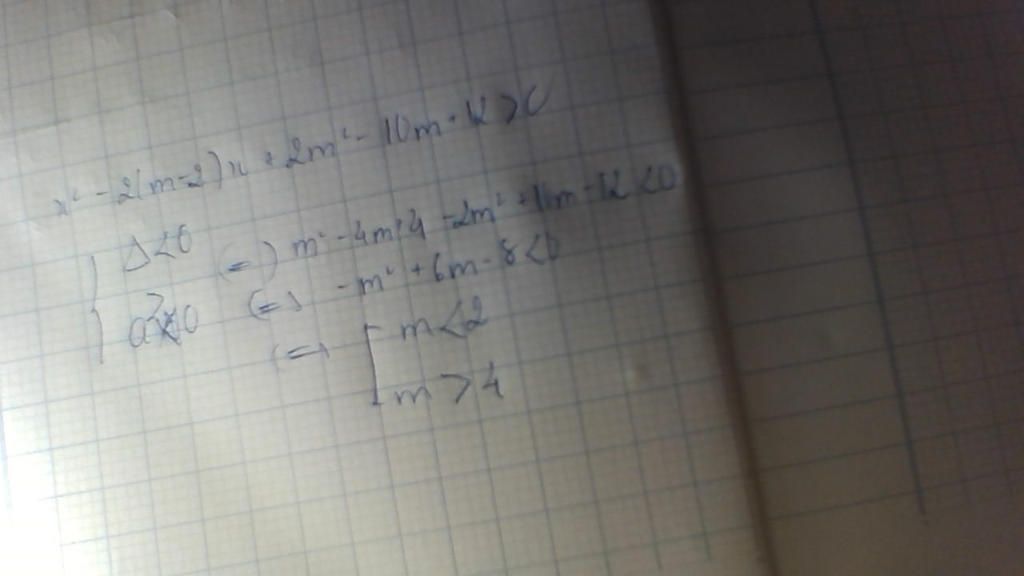 x² - 2(m-2)x + 2m² - 10m + 12 > 0
Δ < 0 (=) m² - 4m + 4 - 2m² + 10m - 12 < 0
a > 0 (=) -m² + 6m - 8 < 0
(=) [ m < 2
m > 4